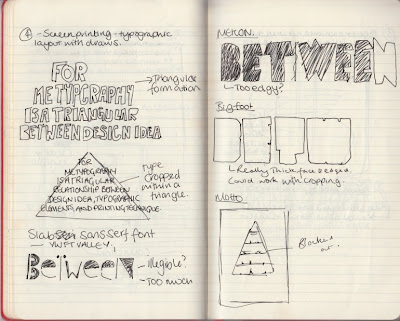 ④ - Screenprinting - typographic
layout with draws.
FOR
ME TYPGRAPHY
IS A TRIANGULAR
BETWEEN DESIGN IDEA
→ Triangular
formation
FOR
ME TYPOGRAPHY
IS A TRIANGULAR
RELATIONSHIP BETWEEN
DESIGN IDEA, TYPOGRAPHIC
ELEMENTS, AND PRINTING TECHNIQUE.
Type
cropped
within a
triangle.
Slab sans serf font
VALLEY,
Between
- illegible?
- Too much
MELLON.
BETWEEN
Too edgy?
Bigfoot
Really thick, face
Could work with cropping.
MOTTO
Blocked
out.